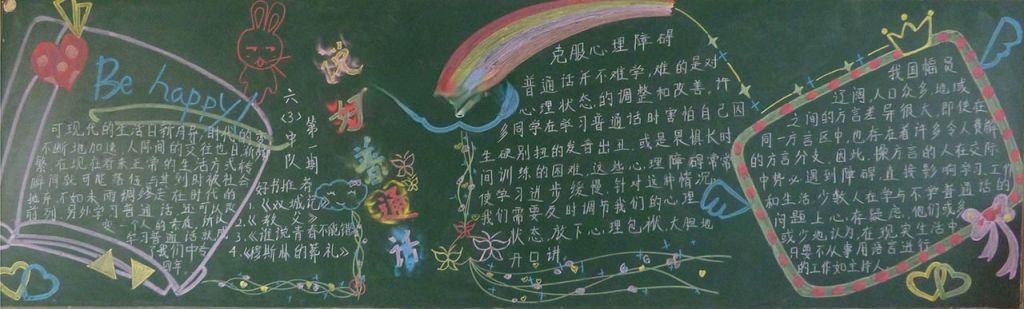 Be happy!
可现代的生活日新月异,时代的
不断地加速,人际间的交往也日渐频
繁,在现在看来正常的生活方式转
瞬间就可能落伍
六(3)中队
第一期
好书推荐
1.《双城记》
2.《救父》
3.《谁说青春不能错》
4.《穆斯林的葬礼》
说好普通话
克服心理障碍
普通话并不难学,难的是对
心理状态的调整和改善,许
多同学在学习普通话时害怕自己因
生硬别扭的发音出丑,或是果惧长时
间训练的困难,这些心理障碍常常
使学习进步缓慢,针对这种情况,
我们需要及时调节我们的心理
状态,放下心理包袱,大胆地
开口讲。
我国幅员
辽阔,人口众多,地域
之间的方言差异很大,即使在
同一方言区中,也存在着许多令人费解
的方言分支,因此,操方言的人在交际
中势必遇到障碍,直接影响学习、工作
和生活。少数人在学与不学普通话的
问题上心存疑虑,他们或多
或少地认为在现实生活中
只要不从事用语言进行
的工作如主持人